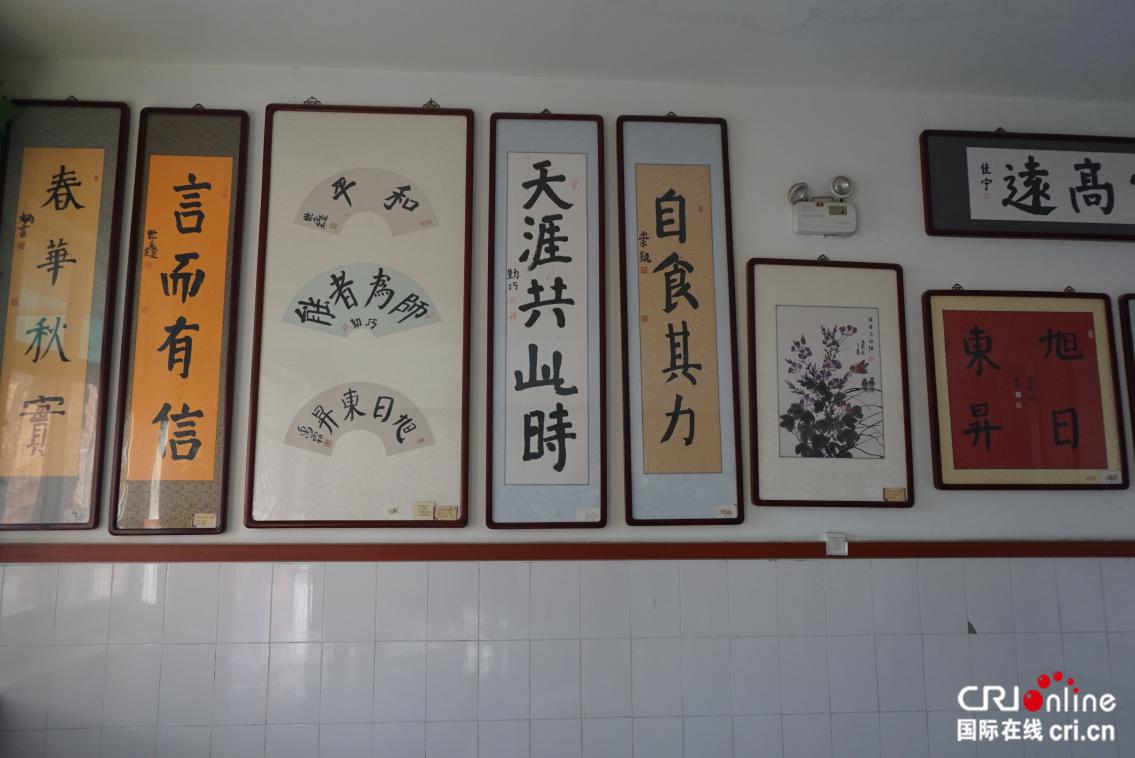 春華秋實
言而有信
和平
能者為師
勤巧
旭日東昇
天涯共此時
勤巧
自食其力
崇凱
高遠
佳宁
旭日
東昇
CRI online
国际在线 cri.cn